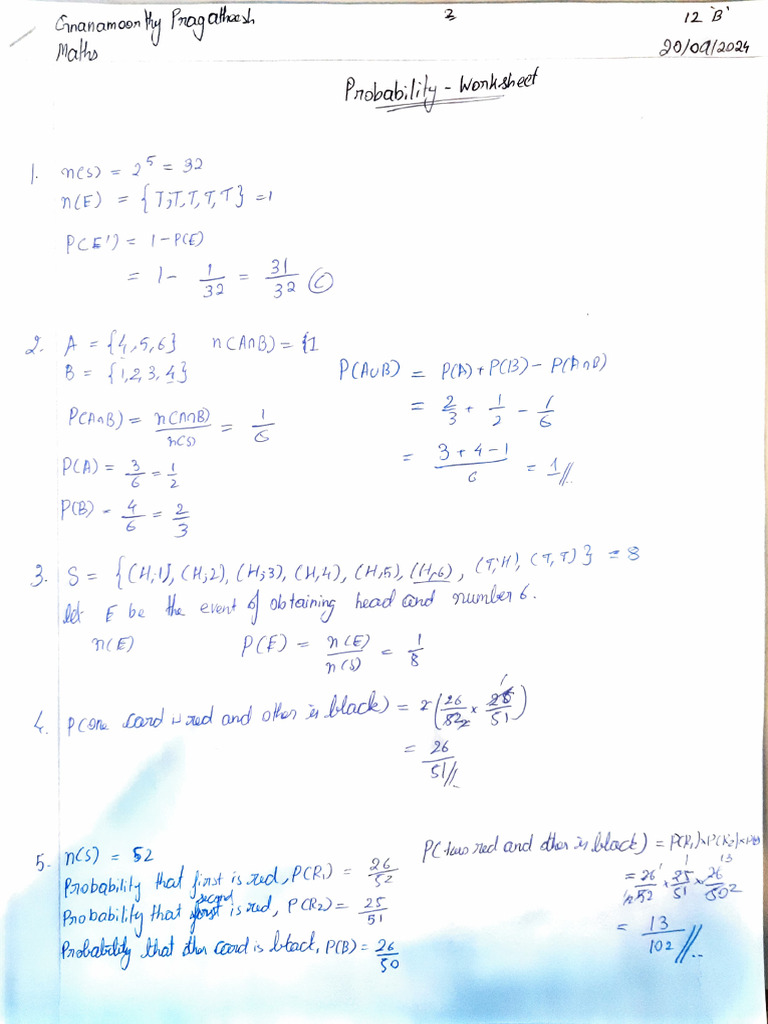 Gnanamoorthy Pragatheesh 3 12 'B'
Maths 20/09/2024
Probability - Worksheet
1. n(S) = 2^5 = 32
n(E) = {T,T,T,T,T} = 1
P(E') = 1 - P(E)
= 1 - 1/32 = 31/32 (C)
2. A = {4,5,6} n(A∩B) = {1
B = {1,2,3,4}
P(A∩B) = n(A∩B)/n(S) = 1/6
P(A) = 3/6 = 1/2
P(B) - 4/6 = 2/3
P(A∪B) = P(A) + P(B) - P(A∩B)
= 2/3 + 1/2 - 1/6
= 3+4-1/6 = 1//
3. S = {(H,1), (H,2), (H,3), (H,4), (H,5), (H,6), (T,H), (T,T)} = 8
let E be the event of obtaining head and number 6.
n(E) P(E) = n(E)/n(S) = 1/8
4. P(one card is red and other is black) = 2(26/52 × 26/51)
= 26/51//
5. n(S) = 52
Probability that first is red, P(R1) = 26/52
Probability that second is red, P(R2) = 25/51
Probability that other card is black, P(B) = 26/50
P(two red and other is black) = P(R1)×P(R2)×P(B)
= 26/52 × 25/51 × 26/50
= 13/102//..